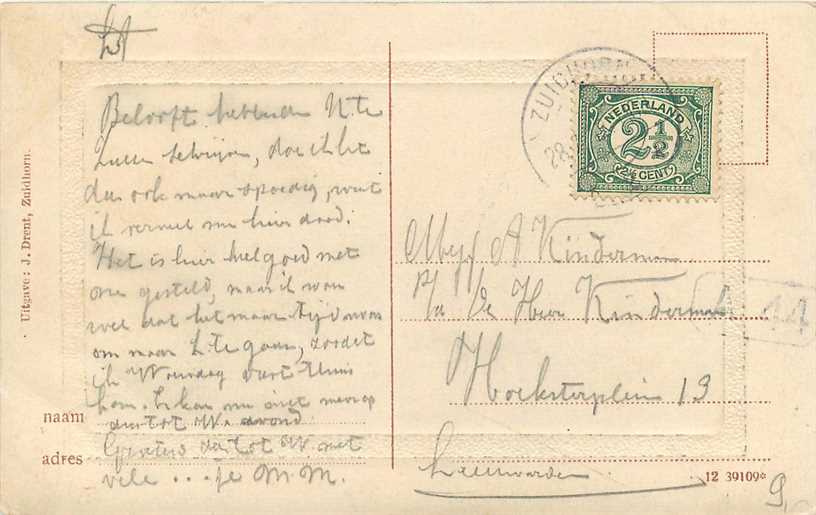 Belooft hebbende U te
zullen schrijven, doe ik het
dan ook maar spoedig, want
ik verveel me hier dood.
Het is hier heel goed met
ons gesteld, maar ik wou
wel dat het maar tijd was
om naar L. te gaan, zoodat
ik Woensdag vast thuis
kom. Ik kan me niet meer op
dus tot W. avond
Groetend dus tot W met
vele ... je M. M.
naam
adres
Uitgave: J. Drent, Zuidhorn.
ZUIDHORN
28
NEDERLAND
2 1/2
2½ CENT
Mej. A Kinderman
P/a de Heer Kinderman
Hoeksterplein 13
Leeuwarden
44
12 39109*
9,